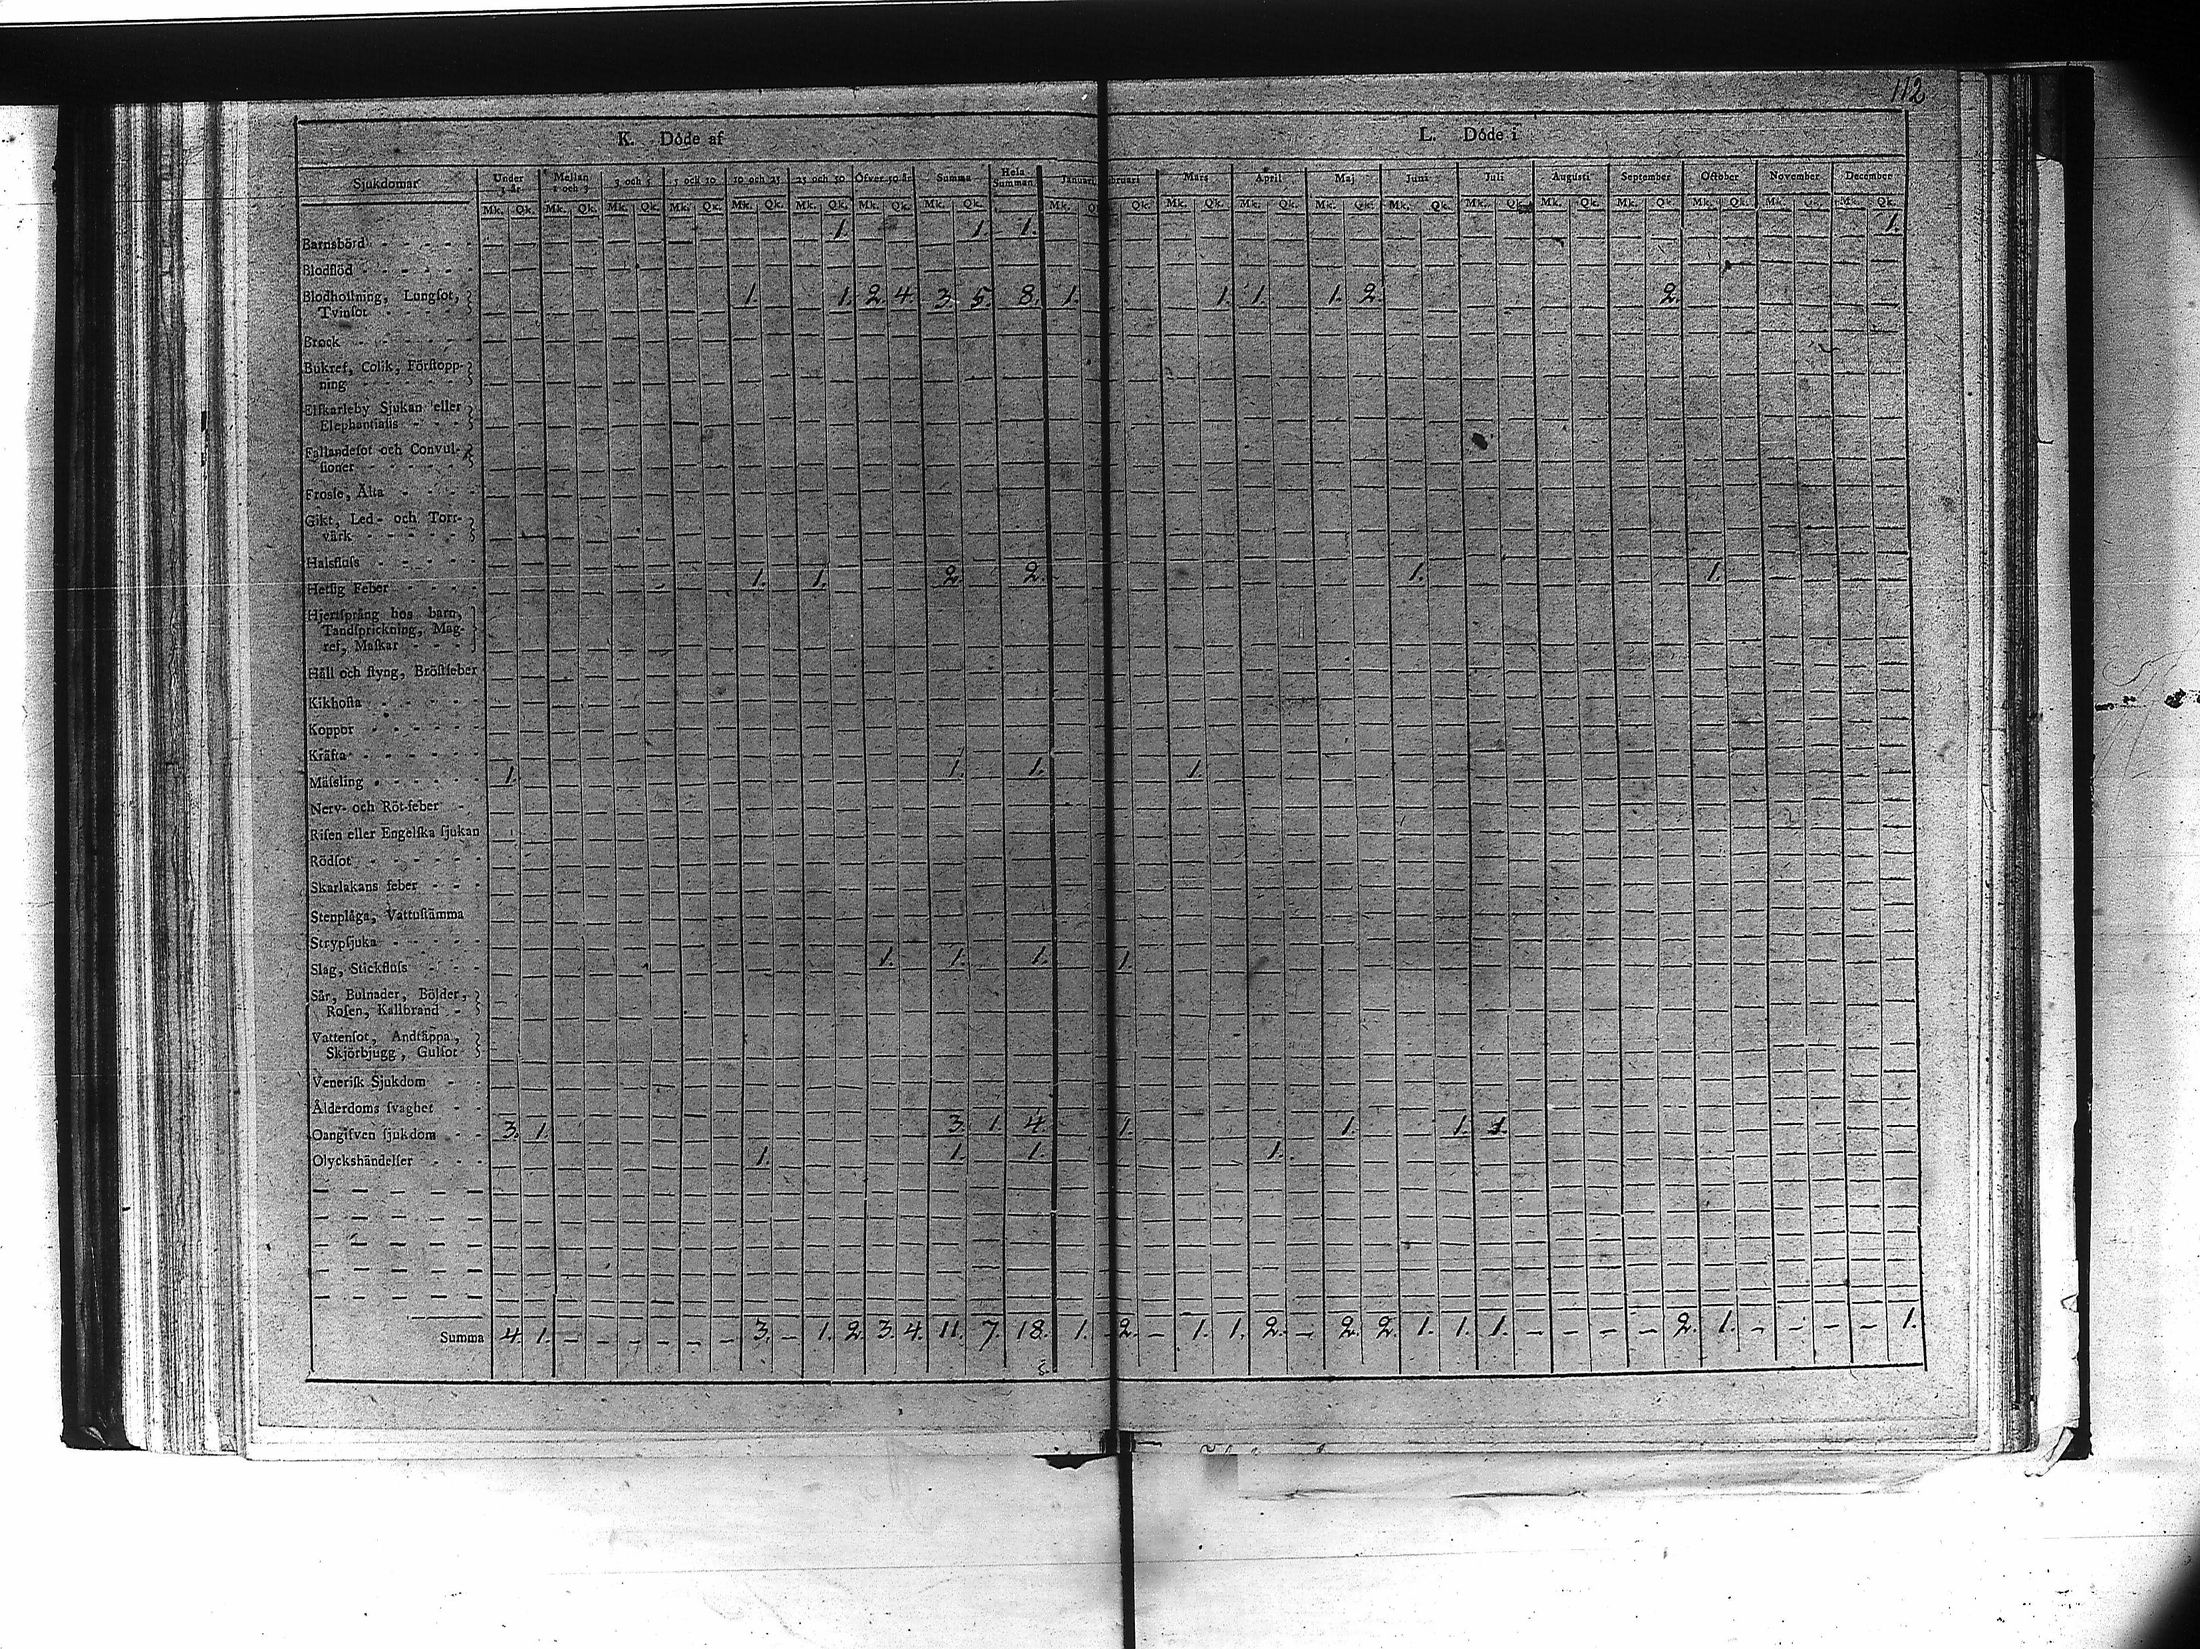 112
K. Döde af L. Döde i
Sjukdomar Under 1 år Mellan 1 och 3 3 och 5 5 och 10 10 och 25 25 och 50 Öfver 50 år Summa Hela Summan Januari bruari Mars April Maj Juni Juli Augusti September October November December
Mk. Qk. Mk. Qk. Mk. Qk. Mk. Qk. Mk. Qk. Mk. Qk. Mk. Qk. Mk. Qk. Mk. Q Qk. Mk. Qk. Mk. Qk. Mk. Qk. Mk. Qk. Mk. Qk. Mk. Qk. Mk. Qk. Mk. Qk. Mk. Qk. Mk. Qk.
Barnsbörd 1. 1 1. 1.
Blodflöd
Blodhostning, Lungſot, 1. 1. 2. 4. 3. 5. 8. 1. 1. 1. 1. 2. 2.
Tvinſot
Brock
Bukref, Colik, Förſtopp-
ning
Elfkarleby Sjukan eller
Elephantiaſis
Fallandeſot och Convul-
ſioner
Frosſe, Älta
Gikt, Led- och Torr-
värk
Halsfluſs
Hetſig Feber 1. 1. 2. 2. 1. 1.
Hjertſprång hos barn,
Tandſprickning, Mag-
ref, Maſkar
Håll och ſtyng, Bröſtfeber
Kikhoſta
Koppor
Kräfta
Mäſsling 1. 1. 1. 1.
Nerv- och Röt-feber
Riſen eller Engelſka ſjukan
Rödſot
Skarlakans feber
Stenplåga, Vattuſtämma
Strypſjuka
Slag, Stickfluſs 1. 1. 1. 1.
Sår, Bulnader, Bölder,
Roſen, Kallbrand
Vattenſot, Andtäppa,
Skjörbjugg, Gulſot
Veneriſk Sjukdom
Ålderdoms ſvaghet
Oangifven ſjukdom 3. 1. 3. 1. 4. 1. 1. 1. 1.
Olyckshändelſer 1. 1. 1. 1.
Summa 4. 1. - - - - - - 3. - 1. 2. 3. 4. 11. 7. 18. 1. 2. - 1. 1. 2. - 2. 2. 1. 1. 1. - - - - 2. 1. - - - - 1.